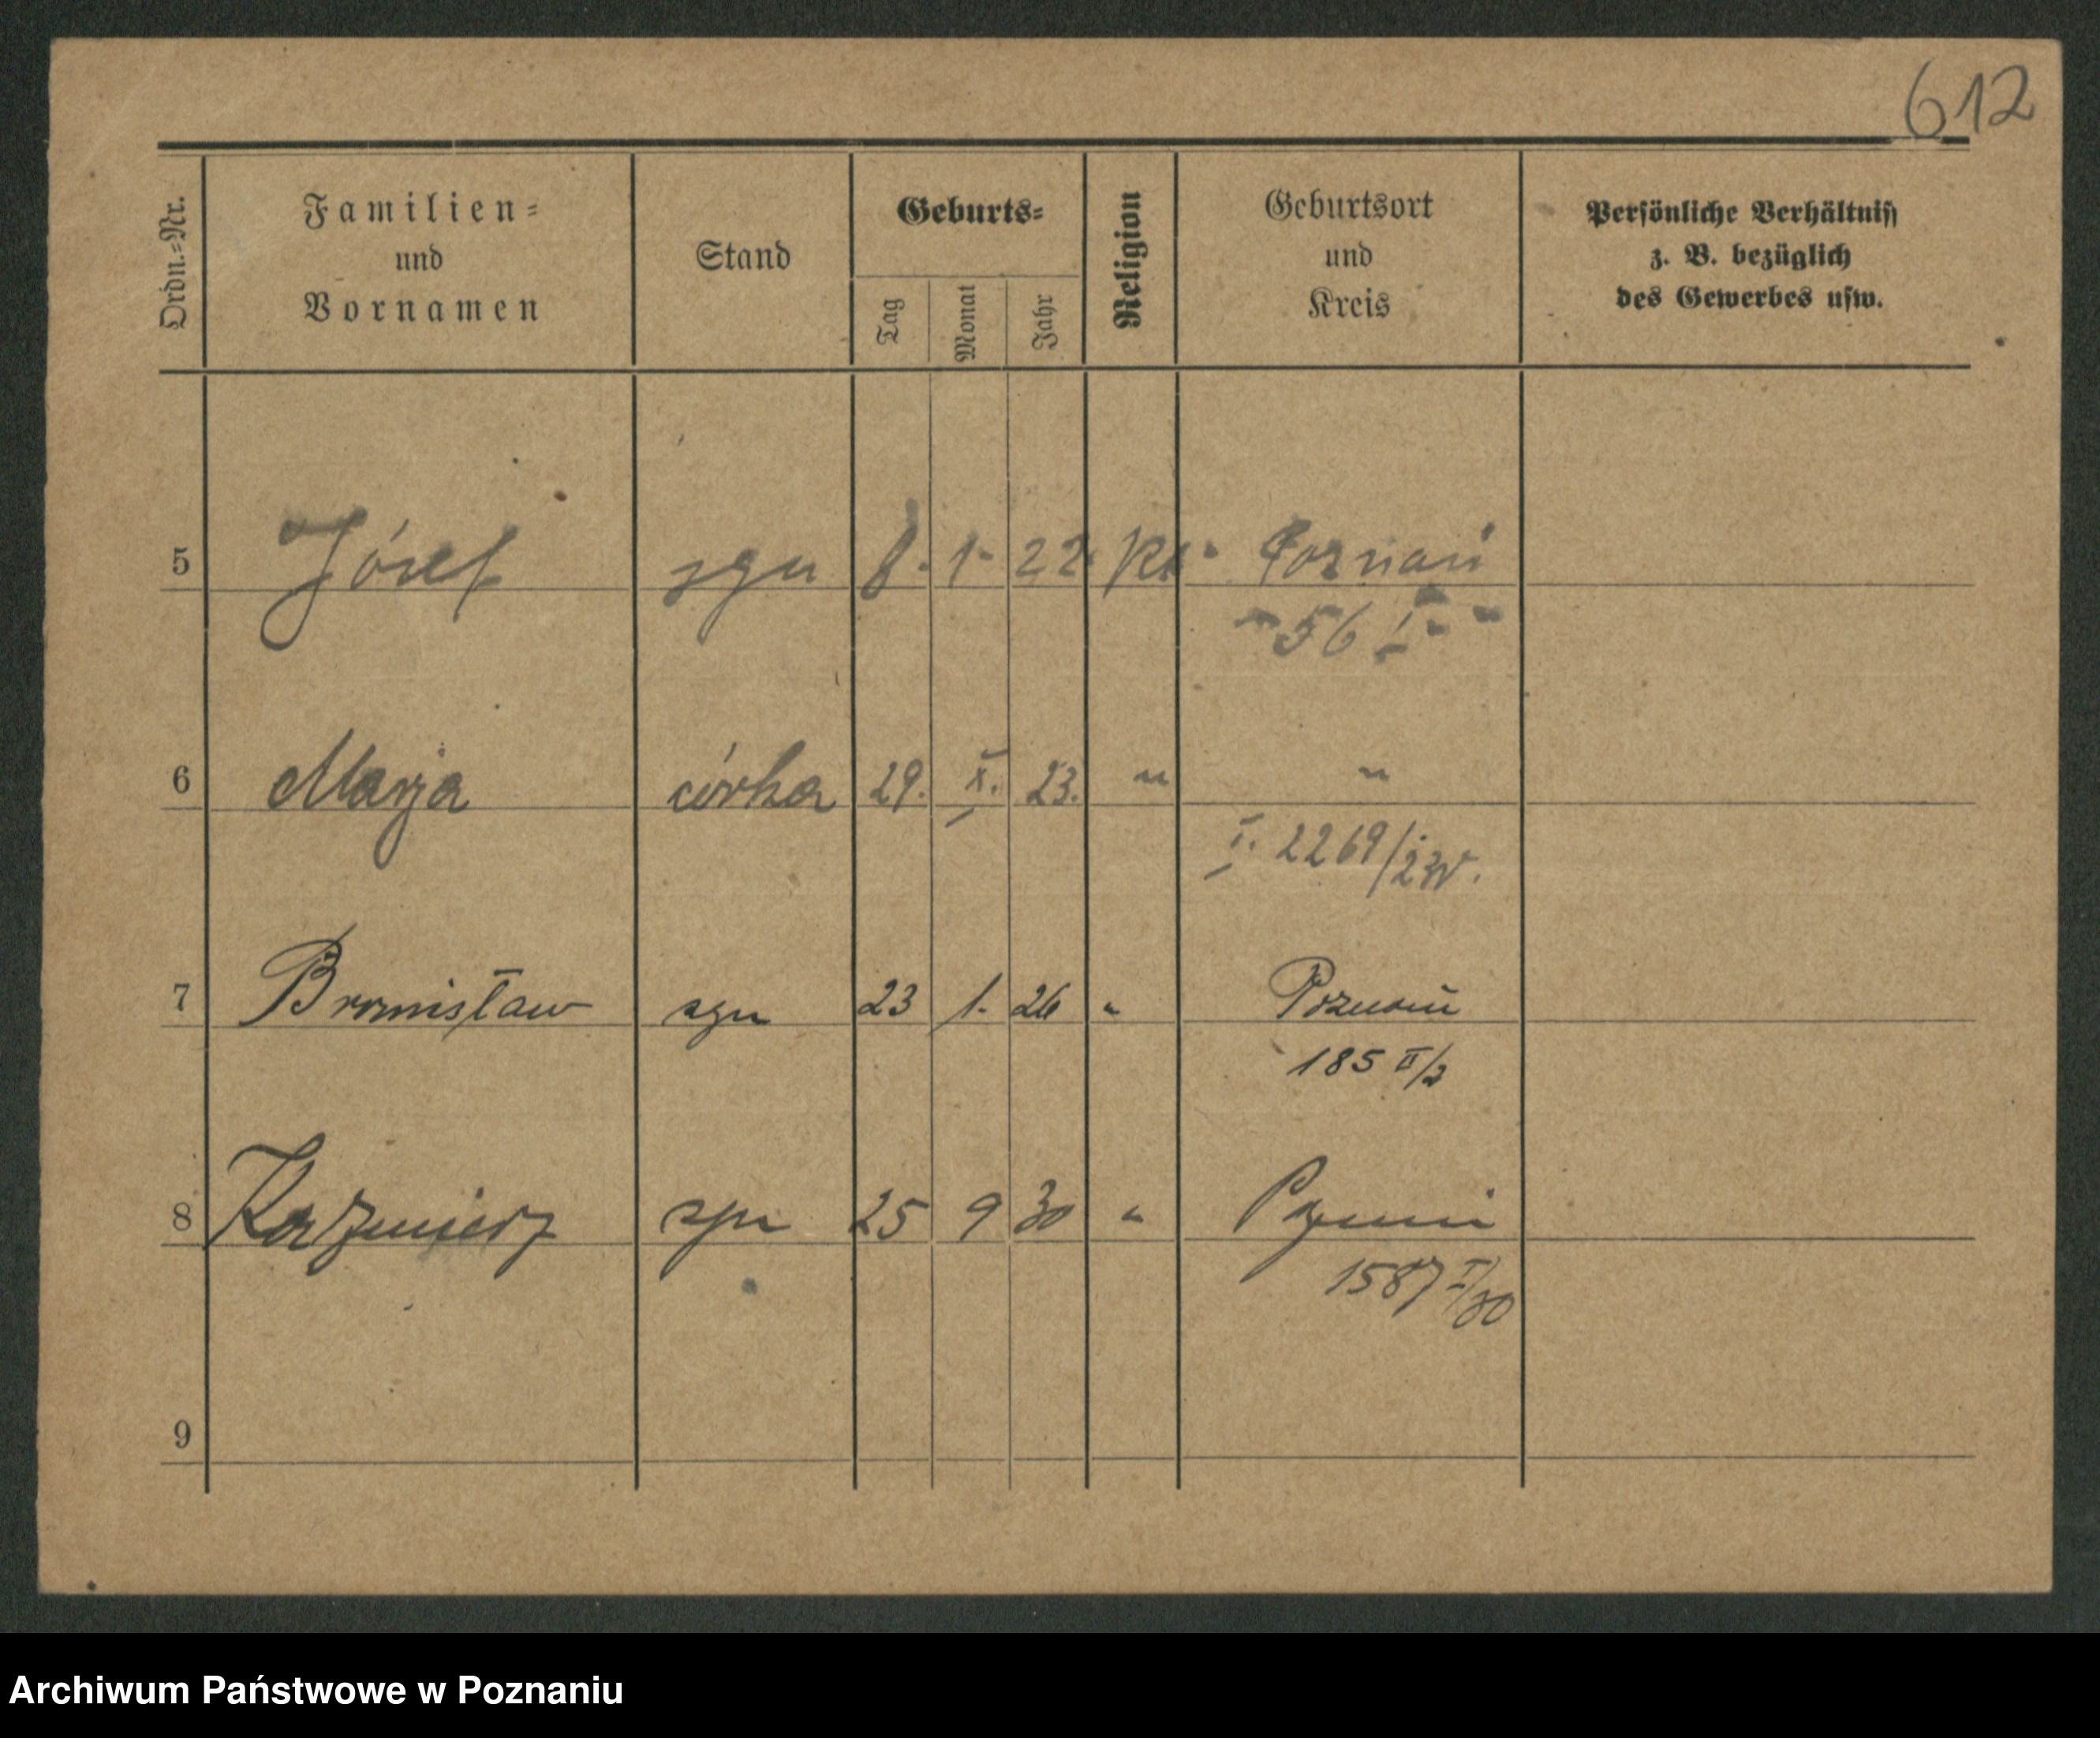 612
Ordn.=Nr.
Familien=
und
Vornamen
Stand
Geburts=
Tag
Monat
Jahr
Religion
Geburtsort
und
Kreis
Persönliche Verhältniss
z. B. bezüglich
des Gewerbes usw.
5 Józef syn 8. 1. 22. kt. Poznań
" 56 I "
6 Marja córka 29. X. 23. " "
I. 2269/23
7 Bronisław syn 23 1. 26 " Poznań
185 II/
8 Kazimierz syn 25 9 30 " Poznań
1587 I/30
9
Archiwum Państwowe w Poznaniu